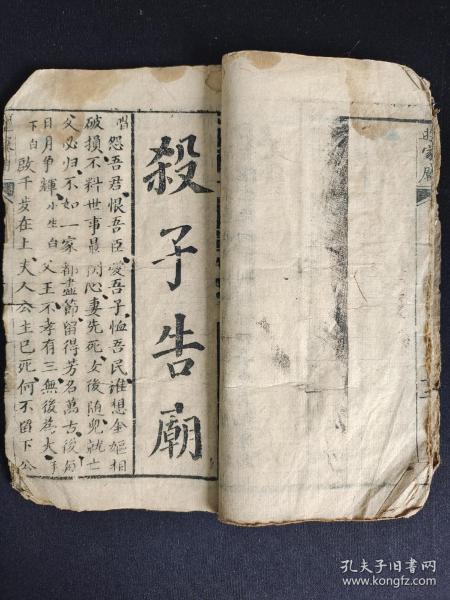 殺子告廟
唱怨吾君恨吾臣愛吾子恤吾民誰想金甌相
破損不料世事最関心妻先死女後随兒就亡
父必归不如一家都盡節留得芳名萬古後
日月争輝小生白父王不孝有三無後為大
下白啟千岁在上夫人公主已死何不留下公
孔夫子旧书网
www.kongfz.com